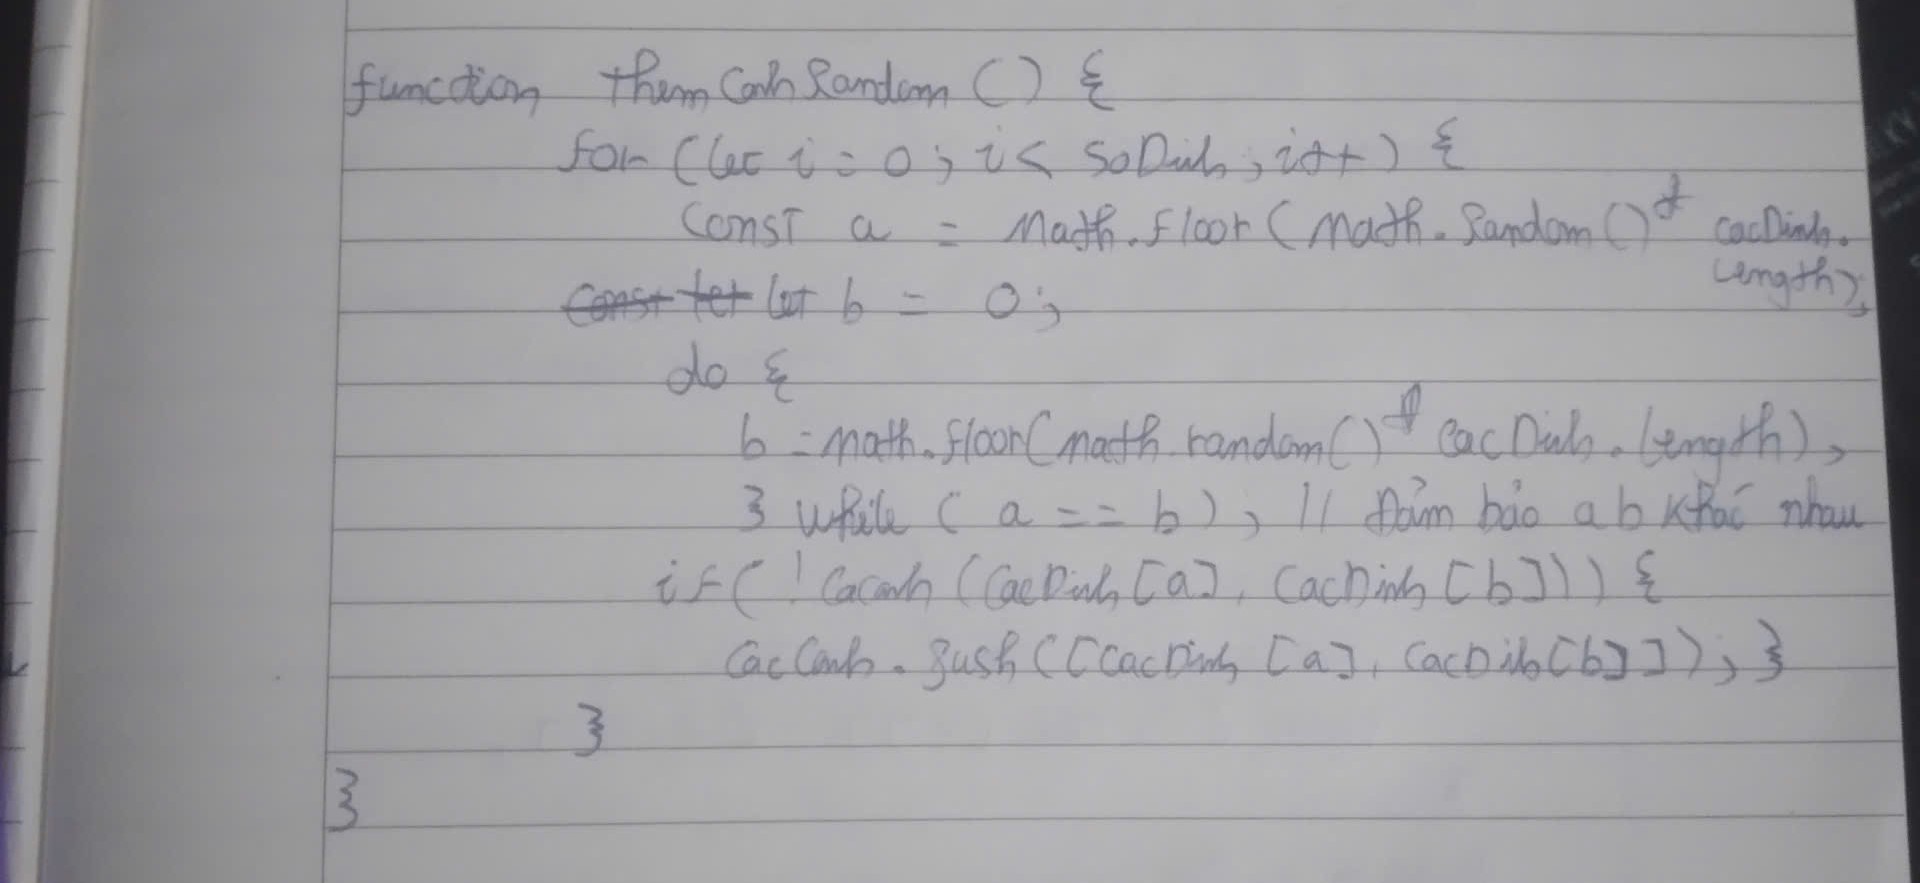 function themCanhRandom () {
for (let i = 0; i < soDinh; i++) {
const a = Math.floor(Math.Random()* cacDinh.
length);
const let let b = 0;
do {
b = math.floor(math.random()* cacDinh.length);
} while (a == b); // Đảm bảo a b khác nhau
if(!Cacanh (CacDinh[a], CacDinh[b])) {
CacCanh.push([CacDinh[a], CacDinh[b]]); }
}
}